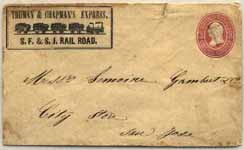 TRUMAN & CHAPMAN'S EXPRESS,
S. F. & S. J. RAIL ROAD.
Messrs Lemoine Gambert & Co
City Store
San Jose